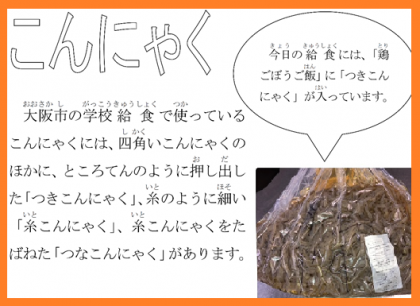 こんにゃく
大阪市の学校給食で使っている
こんにゃくには、四角いこんにゃくの
ほかに、ところてんのように押し出し
た「つきこんにゃく」、糸のように細い
「糸こんにゃく」、糸こんにゃくをた
ばねた「つなこんにゃく」があります。
今日の給食には、「鶏
ごぼうご飯」に「つきこん
にゃく」が入っています。